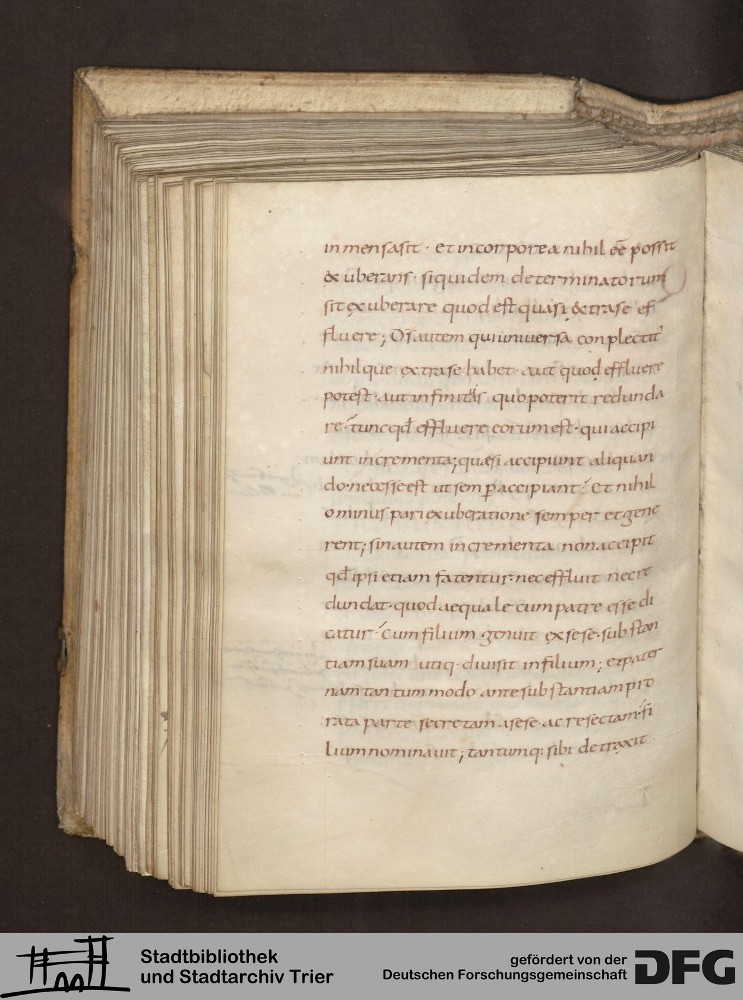 inmensasit · et incorporea nihil eē possit
& uberans · siquidem determinatorum
sit exuberare quod est quasi extrase ef
fluere ; Ds̄ autem qui universa conplectit᷑
nihilque extrase habet · aut quod effluere
potest · aut infinitas quo poterit redunda
re · tunc qd̄ effluere eorum est · qui accipi
unt incrementa ; quasi accipiunt aliquan
do · necesse est ut semp̄ accipiant · et nihil
ominus pari exuberatione semper et gene
rent ; sin autem incrementa non accipit
qd̄ ipsi etiam fatentur · nec effluit nec re
dundat · quod aequale cum patre esse di
catur · cum filium genuit exsese · substan
tiam suam utiq · divisit in filium ; et pater
nam tantummodo ante substantiam pro
rata parte secretam asese ac resectam · fi
lium nominavit ; tantumq: sibi detraxit
Stadtbibliothek
und Stadtarchiv Trier
gefördert von der
Deutschen Forschungsgemeinschaft
DFG